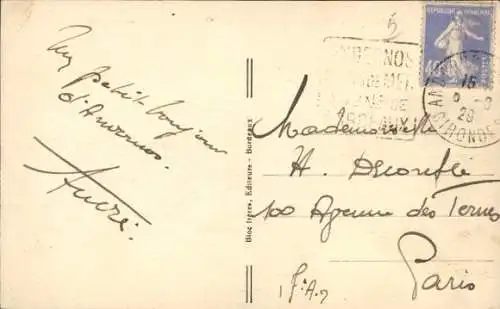 Un petit bonjour
d'Andernos.
André.
Bloc frères, Editeurs - Bordeaux
5
ANDERNOS
REPUBLIQUE FRANÇAISE
40
15
29
GIRONDE
Mademoiselle
H. Deconfle
100 Avenue des Ternes
Paris